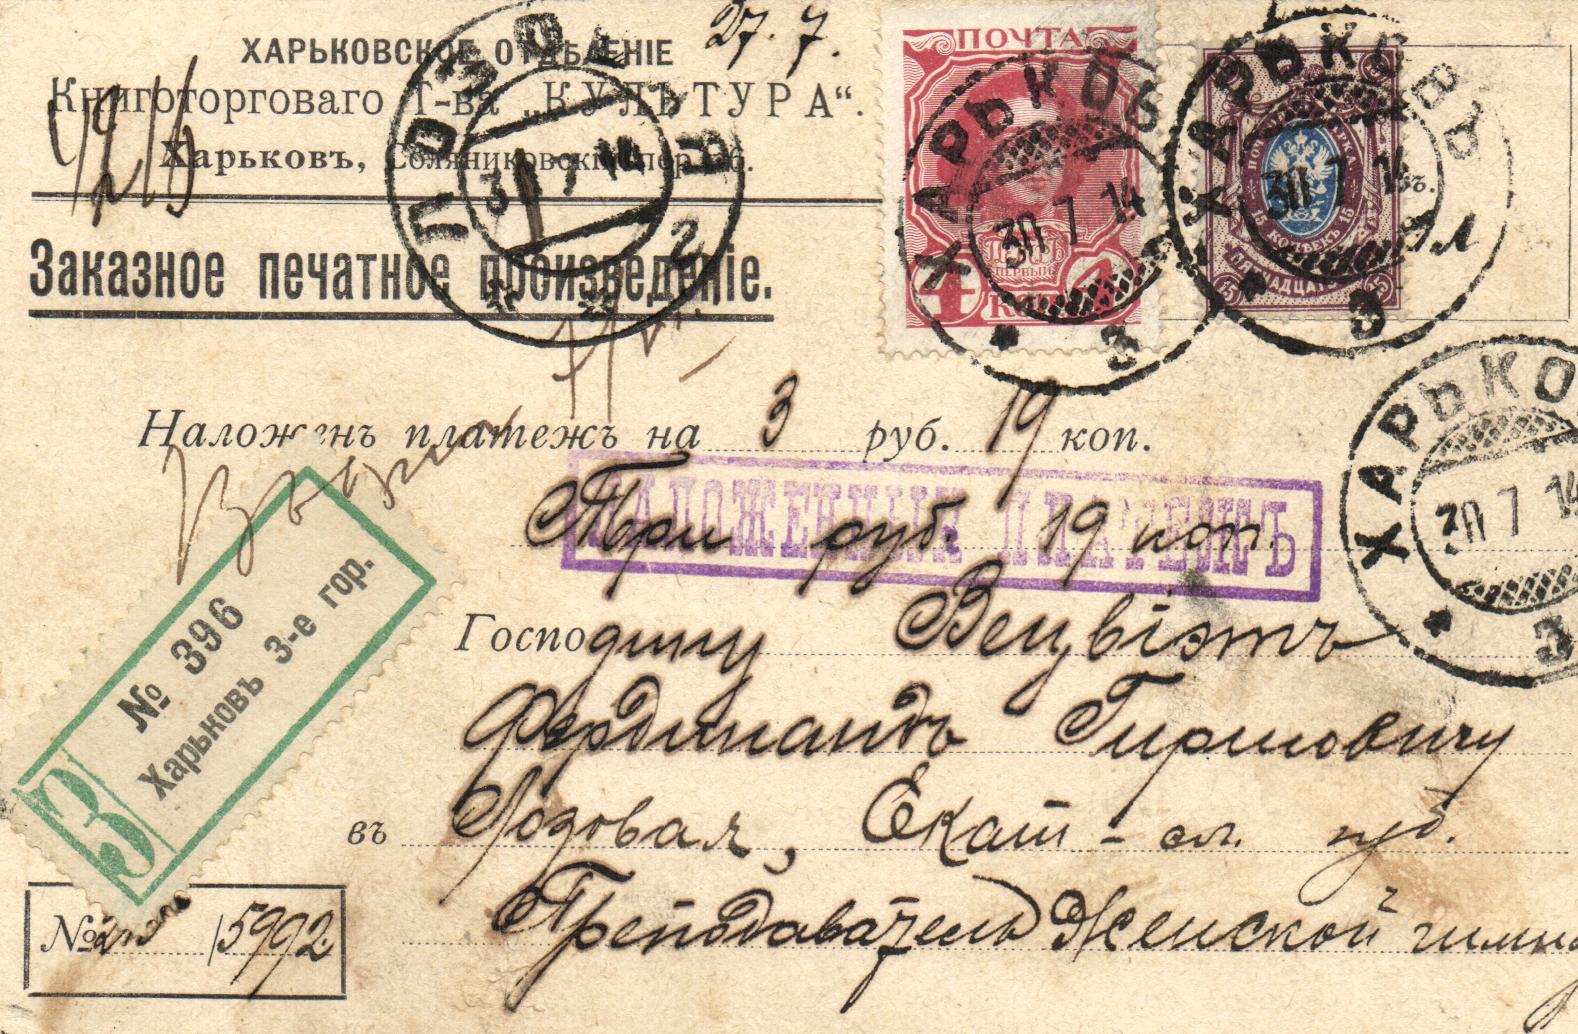 27. 7.
ХАРЬКОВСКОЕ ОТДѢЛЕНІЕ
Книготорговаго Т-ва „КУЛЬТУРА“.
Харьковъ, Соляниковскій пер.
Заказное печатное произведеніе.
ПОЧТА
4 КОП 4
ХАРЬКОВЪ
30 7 14
3
ХАРЬКОВЪ
30 7 14
3
15 КОПѢЕКЪ 15
ХАРЬКОВ
30 7 14
3
30 7 14
Наложенъ платежъ на 3 руб. 19 коп.
НАЛОЖЕННЫЙ ПЛАТЕЖЪ
Три руб. 19 коп.
Господину
Фердинандъ
въ Лозовая, Екат-сл. губ.
Преподаватель Женской гимна
№ 396
Харьковъ 3-е гор.
З
№ 15992